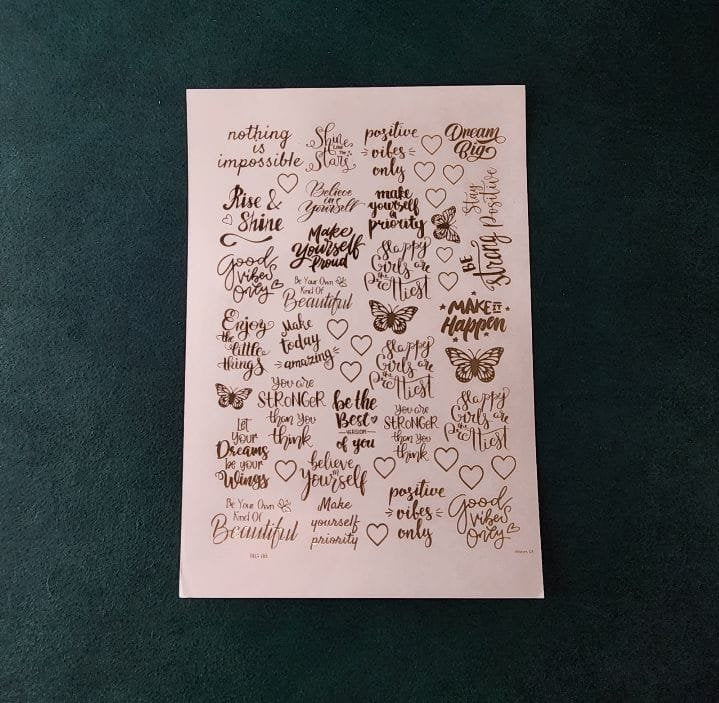 nothing
is
impossible
Shine
Like The
Stars
positive
vibes
only
Dream
Big
Rise &
Shine
Believe
in
Yourself
make
yourself
a
priority
Stay
Positive
BE
strong
Make
Yourself
Proud
Good
Vibes
Only
Happy
Girls are
the
Prettiest
Be Your Own
Kind Of
Beautiful
MAKE IT
Happen
Enjoy
the
little
things
Make
today
amazing
Happy
Girls are
the
Prettiest
You are
STRONGER
than You
think
be the
Best
VERSION
of you
You are
STRONGER
than You
think
Happy
Girls are
the
Prettiest
Let
your
Dreams
be your
Wings
believe
in
Yourself
Be Your Own
Kind Of
Beautiful
Make
yourself
priority
positive
vibes
only
Good
Vibes
Only